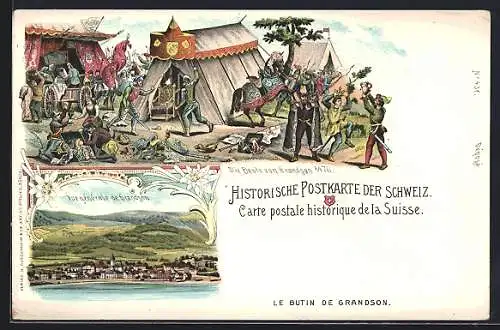 Die Beute von Grandson 1476.
HISTORISCHE POSTKARTE DER SCHWEIZ.
Carte postale historique de la Suisse.
Vue générale de Grandson
LE BUTIN DE GRANDSON.